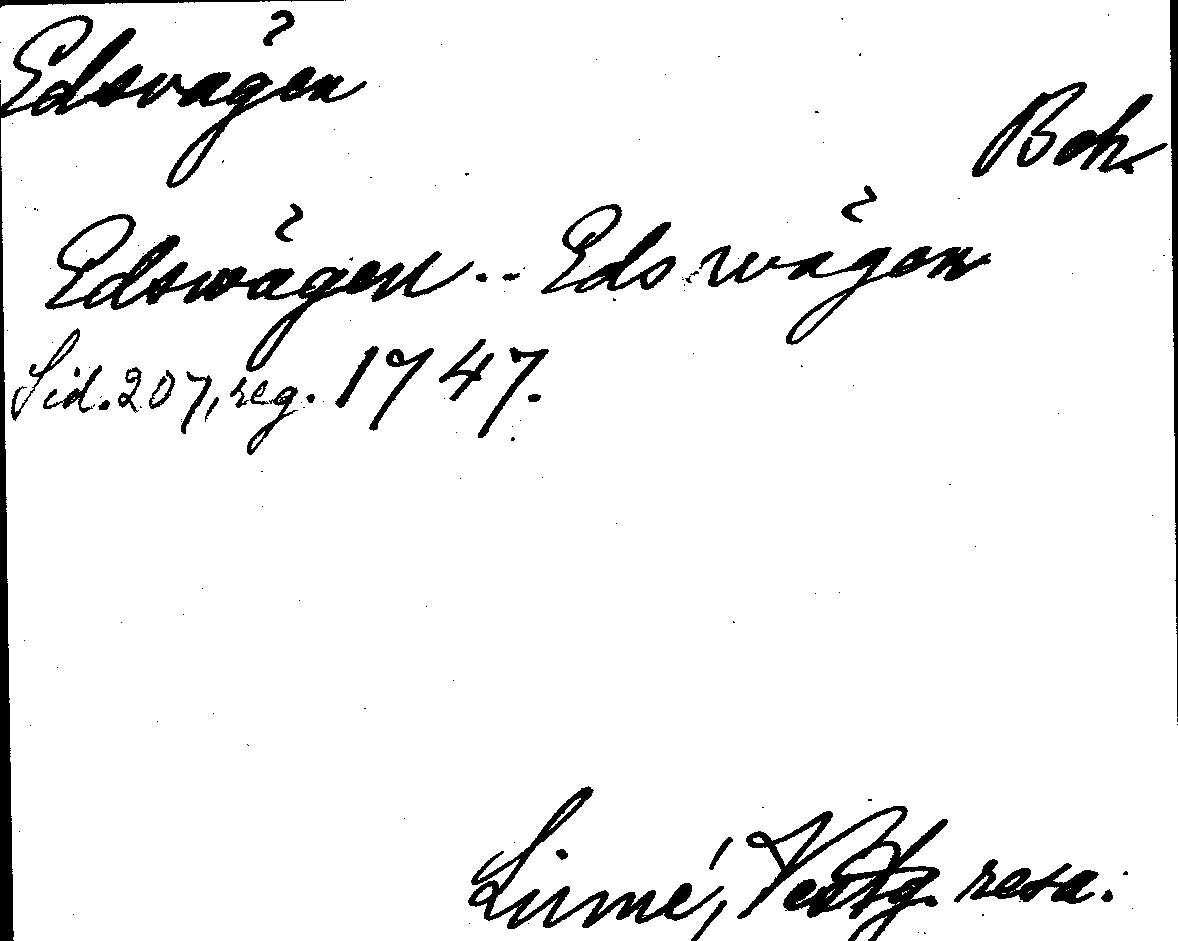 Edsvågen
Boh.
Edswågen -- Eds wågen
Sid. 207, reg. 1747.
Linné, Vestg. resa.